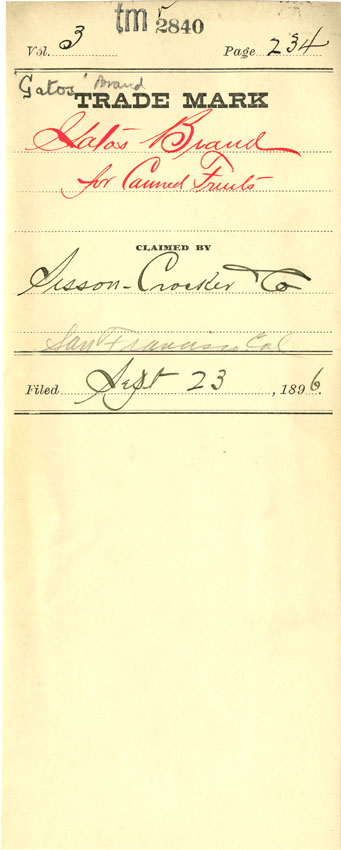 tm 5
2840
Vol. 3 Page 234
"Gatos" Brand
TRADE MARK
Gatos Brand
for Canned Fruits
CLAIMED BY
Sisson-Crocker Co
San Francisco, Cal
Filed Sept 23, 1896.